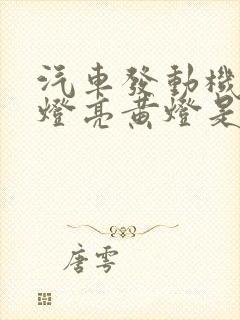 汽車發動機
燈亮黃燈是
唐雪